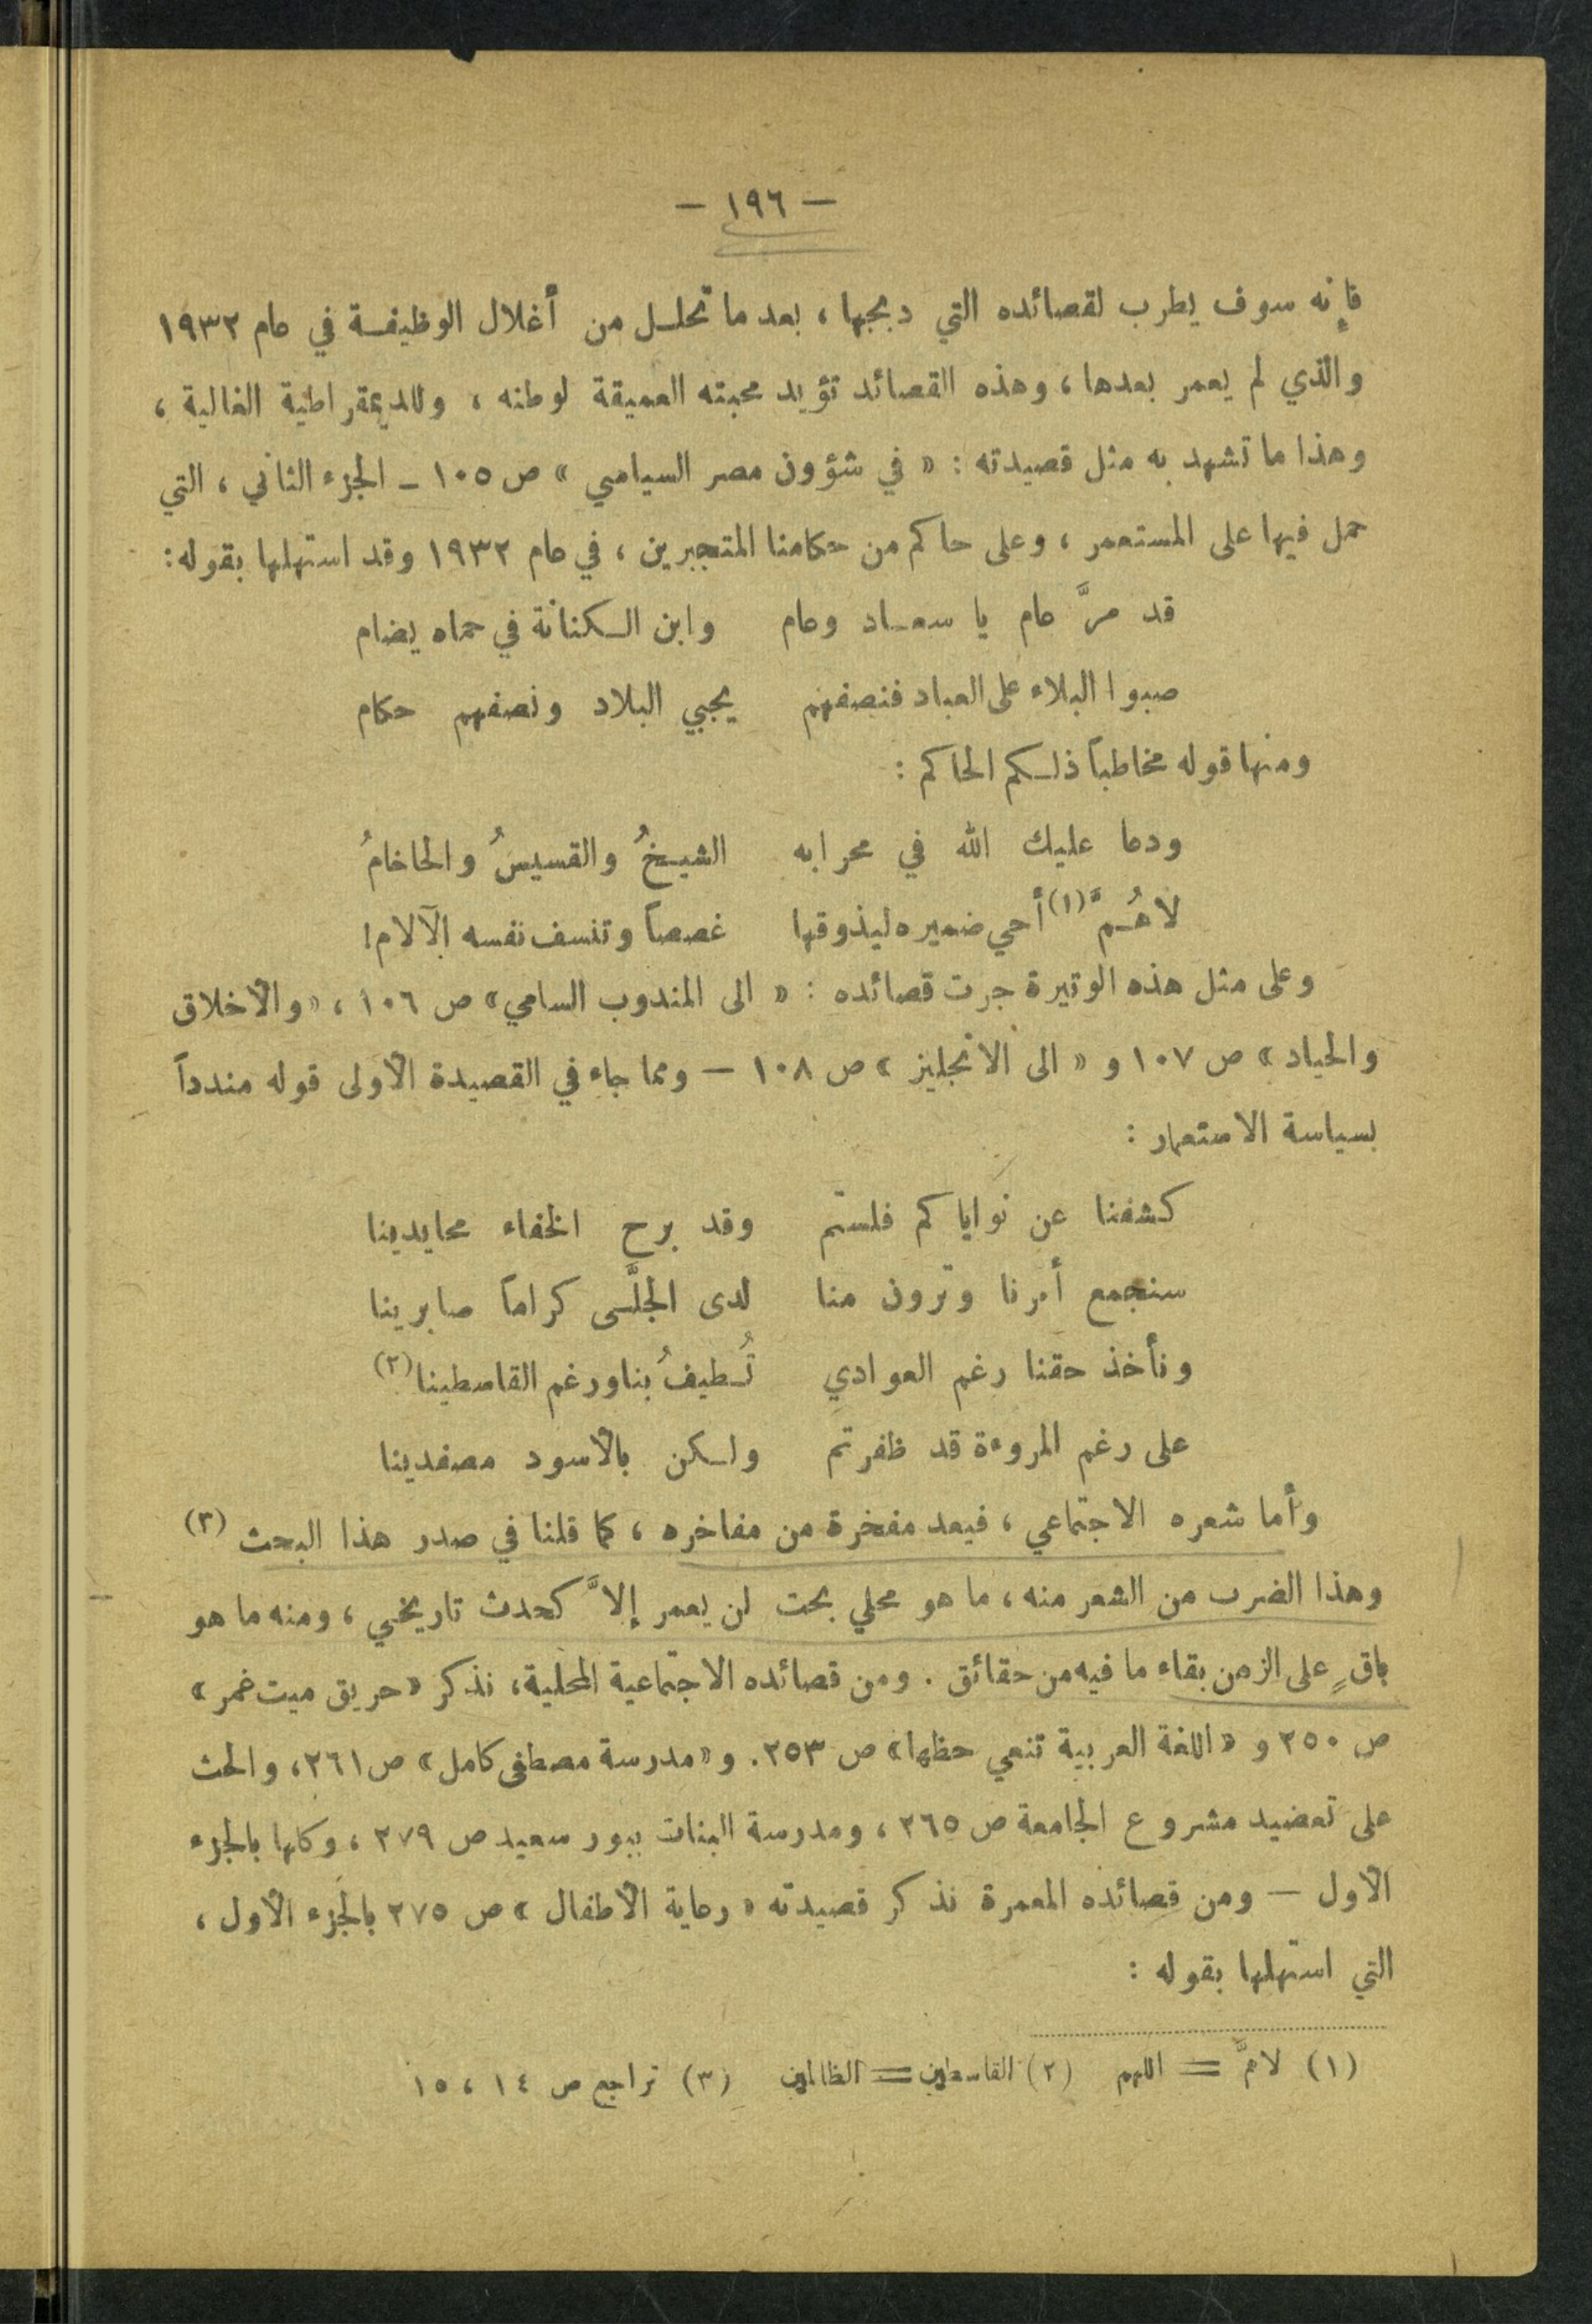 — ١٩٦ —
فإنه سوف يطرب لقصائده التي دبجها ، بعد ما تحلل من أغلال الوظيفة في عام ١٩٣٢
والذي لم يعمر بعدها ، وهذه القصائد تؤيد محبته العميقة لوطنه ، وللديمقراطية الغالية ،
وهذا ما تشهد به مثل قصيدته : « في شؤون مصر السياسي » ص ١٠٥ ـ الجزء الثاني ، التي
حمل فيها على المستعمر ، وعلى حاكم من حكامنا المتجبرين ، في عام ١٩٣٢ وقد استهلها بقوله :
قد مرَّ عام يا سعاد وعام    وابن الكنانة في حماه يضام
صبوا البلاء على العباد فنصفهم    يجبي البلاد ونصفهم حكام
ومنها قوله مخاطباً ذلكم الحاكم :
ودعا عليك الله في محرابه    الشيخُ والقسيسُ والحاخامُ
لاهُمَّ (١) أحي ضميره ليذوقها    غصصاً وتنسف نفسه الآلام !
وعلى مثل هذه الوتيرة جرت قصائده : « الى المندوب السامي » ص ١٠٦ ، « والأخلاق
والحياد » ص ١٠٧ و « الى الانجليز » ص ١٠٨ — ومما جاء في القصيدة الأولى قوله مندداً
بسياسة الاستعمار :
كشفنا عن نواياكم فلستم    وقد برح الخفاء محايدينا
سنجمع أمرنا وترون منا    لدى الجلَّى كراماً صابرينا
ونأخذ حقنا رغم العوادي    تُطيفُ بنا ورغم القاسطينا (٢)
على رغم المروءة قد ظفرتم    ولكن بالأسود مصفدينا
وأما شعره الاجتماعي ، فيعد مفخرة من مفاخره ، كما قلنا في صدر هذا البحث (٣)
وهذا الضرب من الشعر منه ، ما هو محلي بحت لن يعمر إلاَّ كحدث تاريخي ، ومنه ما هو
باقٍ على الزمن بقاء ما فيه من حقائق . ومن قصائده الاجتماعية المحلية ، نذكر « حريق ميت غمر »
ص ٢٥٠ و « اللغة العربية تنعي حظها » ص ٢٥٣ . و « مدرسة مصطفى كامل » ص ٢٦١ ، والحث
على تعضيد مشروع الجامعة ص ٢٦٥ ، ومدرسة البنات ببور سعيد ص ٢٧٩ ، وكلها بالجزء
الأول — ومن قصائده المعمرة نذكر قصيدته « رعاية الأطفال » ص ٢٧٥ بالجزء الأول ،
التي استهلها بقوله :
(١) لاهمَّ = اللهم    (٢) القاسطين = الظالمين    (٣) تراجع ص ١٤ ، ١٥